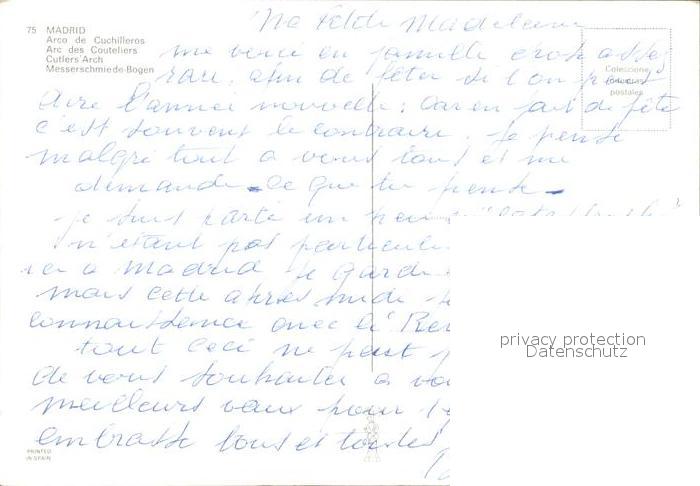 75 MADRID
Arco de Cuchilleros
Arc des Couteliers
Cutlers'Arch
Messerschmiede-Bogen
Ma Petite Madeleine
me voici en famille chose assez
rare, afin de fêter si l'on peut
dire l'année nouvelle; car en fait de fête
c'est souvent le contraire. Je pense
malgré tout a vous tous et me
demande ce que tu pense
je suis parti un peu
n'étant pas particuli
a Madrid je gard
mais cette après midi
connaissance avec le
tout ceci ne peut
de vous souhaiter a
meilleurs vœux pour
embrasse tous et toutes
Colecciones
postales
privacy protection
Datenschutz
PRINTED
IN SPAIN